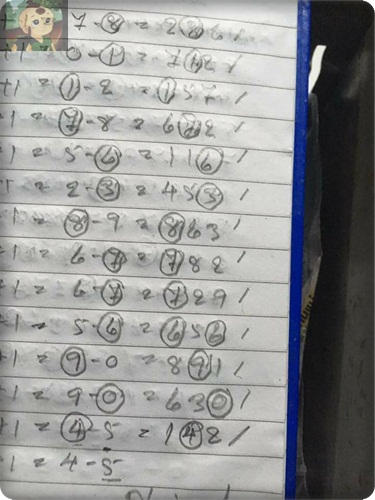 7 - 8 = 286 /
+1 = 0 - 1 = 712 /
+1 = 1 - 2 = 157 /
+1 = 7 - 8 = 672 /
+1 = 5 - 6 = 116 /
+1 = 2 - 3 = 453 /
+1 = 8 - 9 = 863 /
+1 = 6 - 7 = 782 /
+1 = 6 - 7 = 729 /
+1 = 5 - 6 = 656 /
+1 = 9 - 0 = 891 /
+1 = 9 - 0 = 630 /
+1 = 4 - 5 = 142 /
+1 = 4 - 5